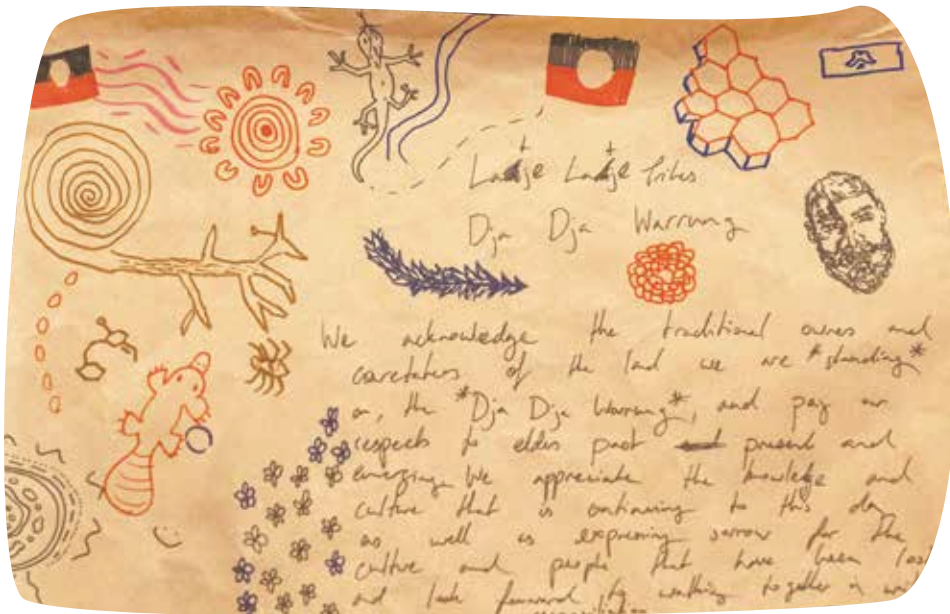 Latje Latje Tribes
Dja Dja Warrung
We acknowledge the traditional owners and
caretakers of the land we are *standing*
on, the *Dja Dja Warrung*, and pay our
respects to elders past present and
emerging. We appreciate the knowledge and
culture that is continuing to this day
as well as expressing sorrow for the
culture and people that have been los
and look forward to working together in